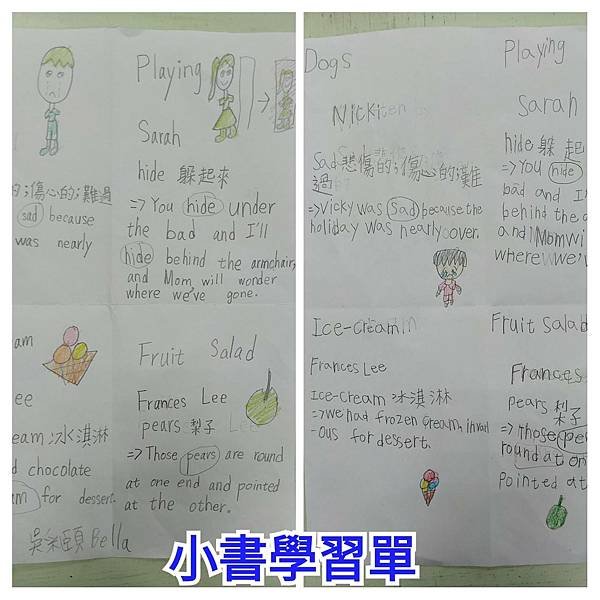 Playing
Sarah
hide 躲起來
的;傷心的;難過
sad because
was nearly
=> You hide under
the bad and I'll
hide behind the armchair,
and Mom will wonder
where we've gone.
am
ee
eam 冰淇淋
d chocolate
am for dessert.
Fruit Salad
Frances Lee
pears 梨子
=> Those pears are round
at one end and pointed
at the other.
Bella
Dogs
Sad 悲傷的;傷心的;難
過
=> Vicky was Sad because the
holiday was nearly over.
Playing
Sarah
hide 躲起
=> You hide
bad and I
behind the a
and Mom wi
where we'v
Ice-Cream
Frances Lee
Ice-Cream 冰淇淋
=> we had frozen cream,
-ous for dessert.
Fruit Salad
Frances
pears 梨子
=> Those pe
round at on
Pointed at
小書學習單